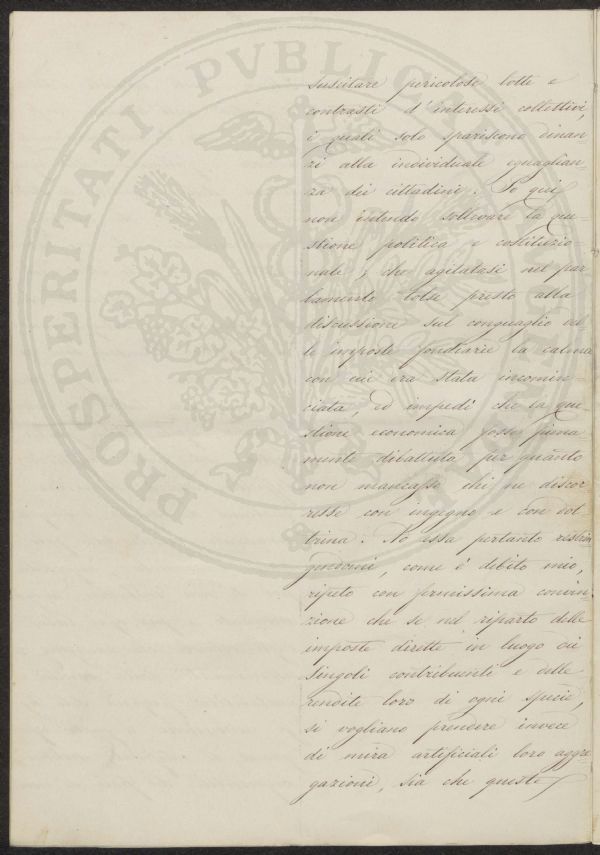 suscitare pericolose lotte e
contrasti d'interessi collettivi,
i quali solo spariscono dinan-
zi alla individuale eguaglian-
za dei cittadini. Io qui
non intendo sollevare la que-
stione politica e costituzio-
nale, che agitatasi nel par
lamento tolse presto alla
discussione sul conguaglio del
le imposte fondiarie la calma
con cui era stata incomin-
ciata, ed impedì che la que-
stione economica fosse piena
mente dibattuta per quanto
non mancasse chi ne discor
resse con ingegno e con dot
trina. Ad essa pertanto restrin
gendomi, come è debito mio,
ripeto con fermissima convin-
zione che se nel riparto delle
imposte dirette in luogo dei
singoli contribuenti e delle
rendite loro di ogni specie,
si vogliano prendere invece
di mira artificiali loro aggre
gazioni, sia che queste
PROSPERITATI PVBLICAE